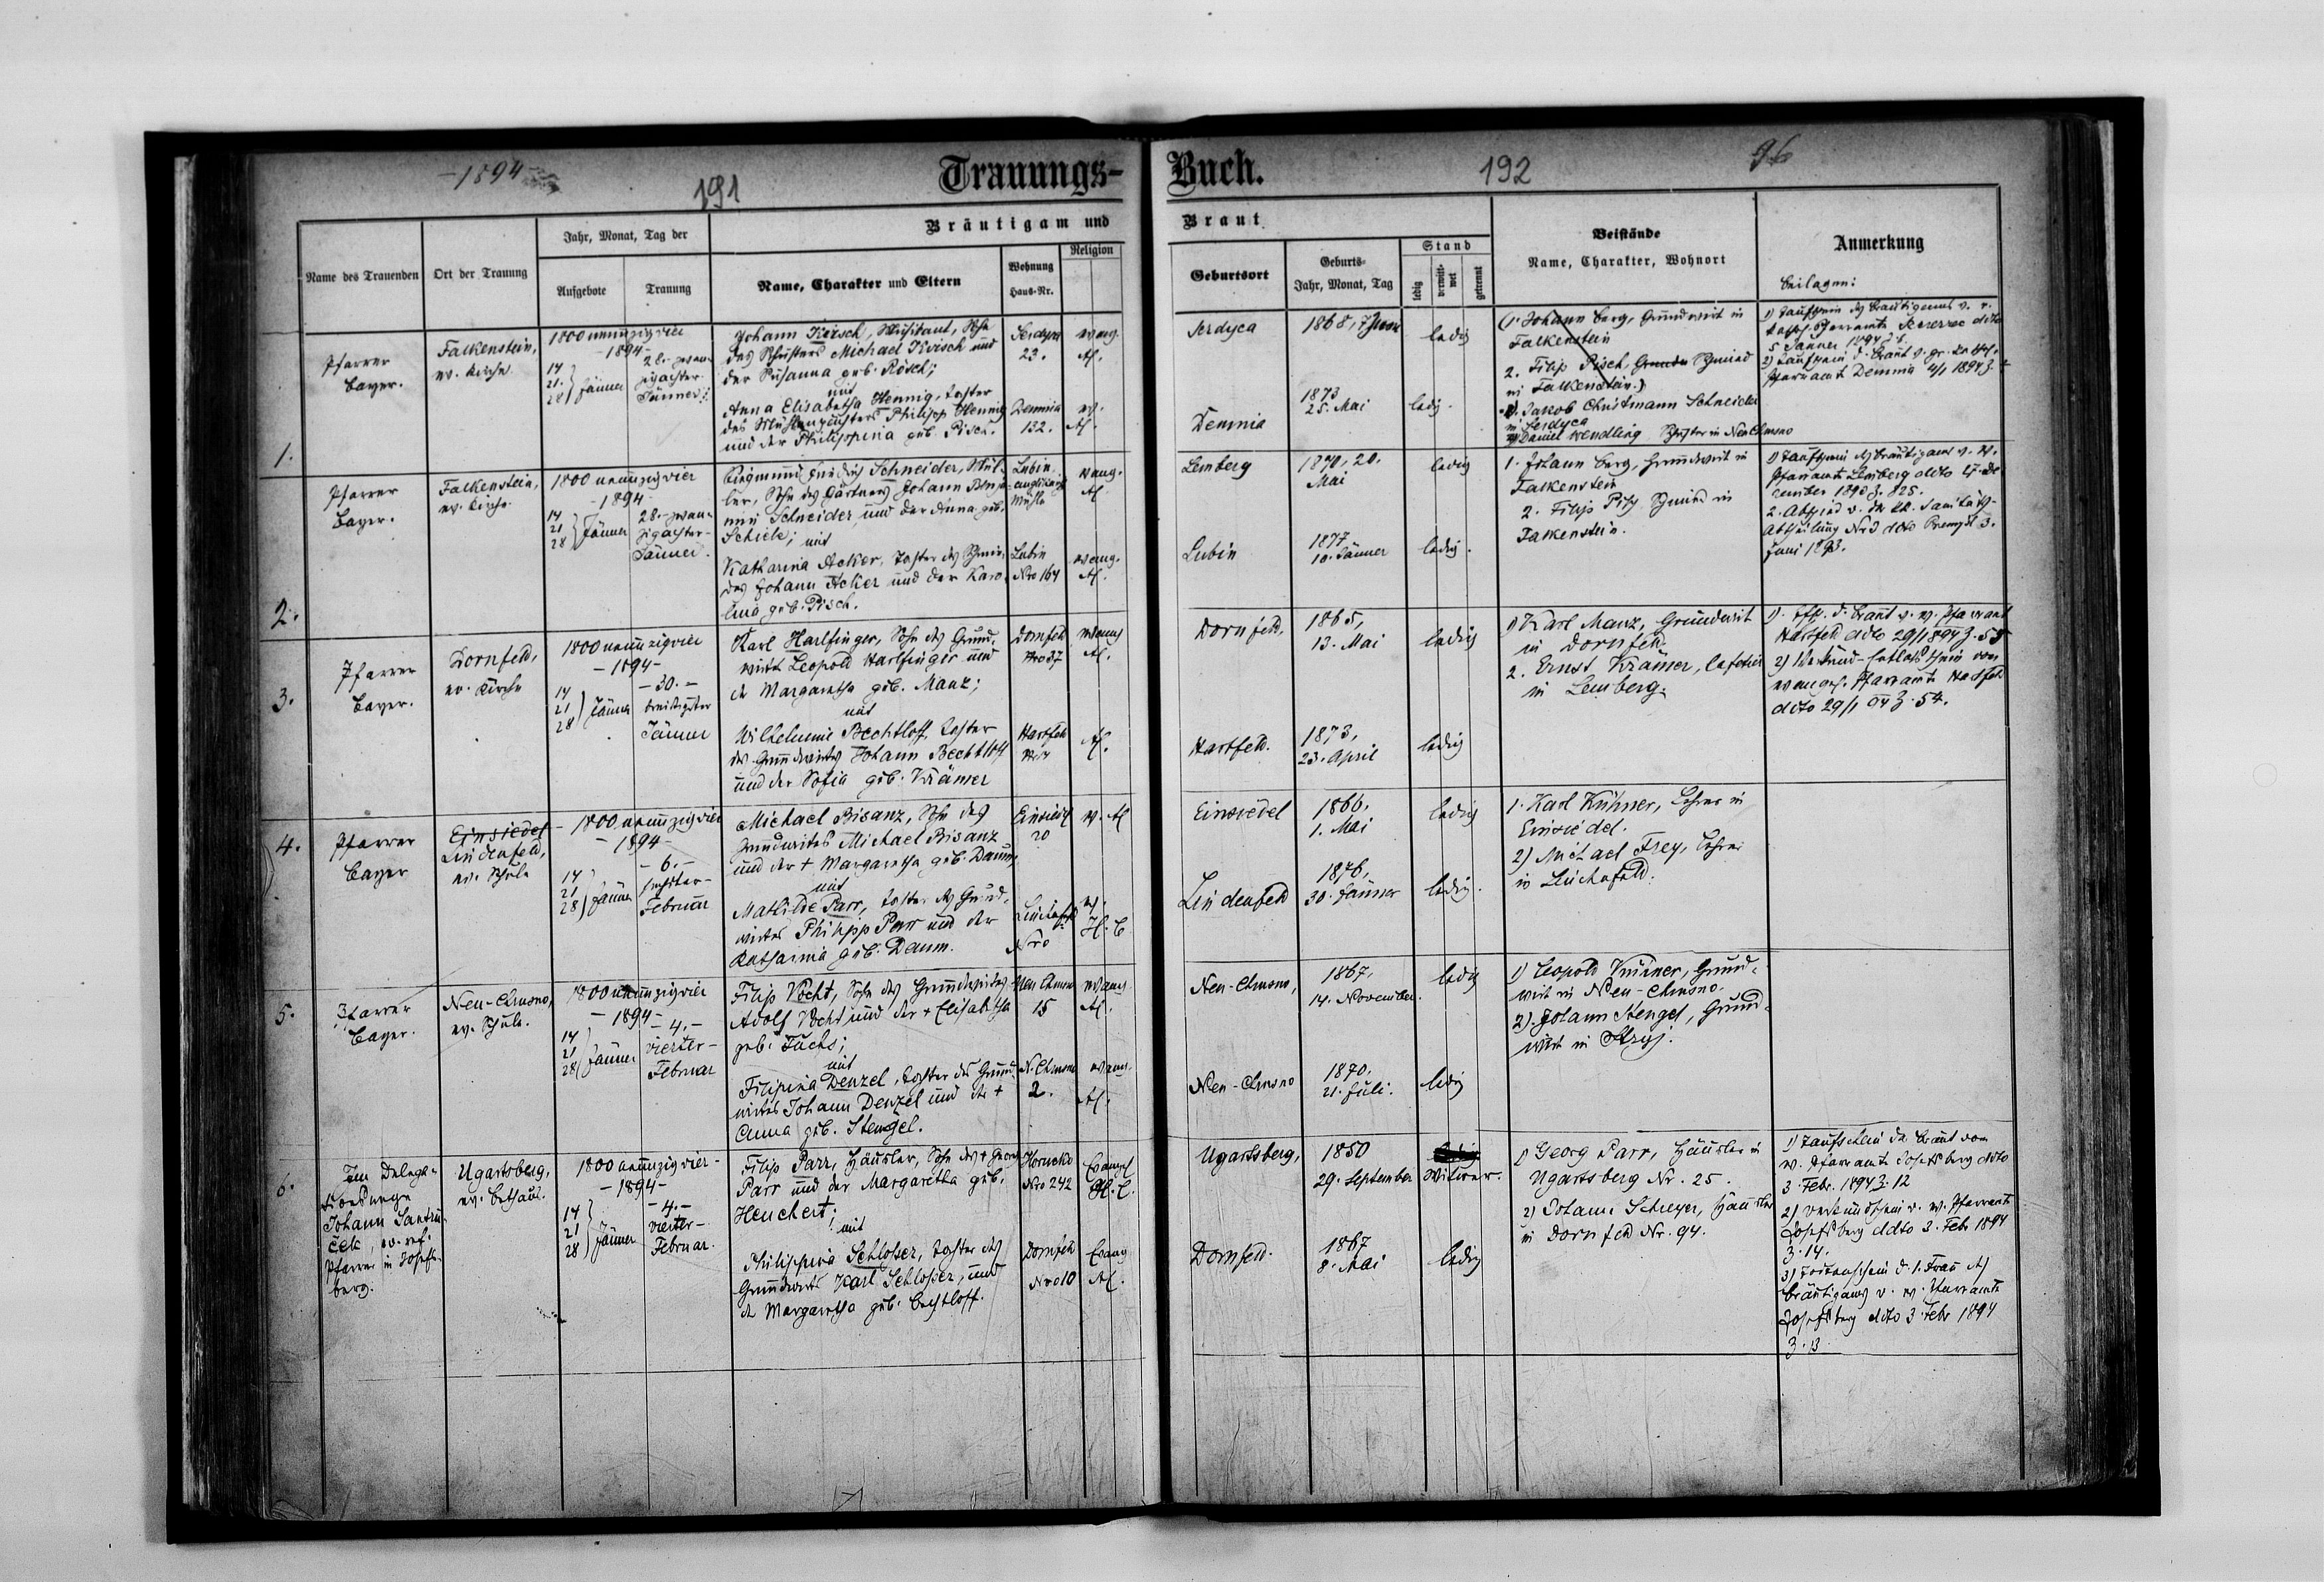 -1894-
191
Trauungs-
Name des Trauenden
Ort der Trauung
Jahr, Monat, Tag der
Aufgebote
Trauung
Bräutigam und
Name, Charakter und Eltern
Wohnung
Haus-Nr.
Religion
1.
Pfarrer
Bayer.
Falkenstein,
ev. Kirche
1800 neunzigvier
-1894-
14
21.
28
Jänner
28. zwan-
zigachter
Jänner
Johann Kirisch, Sohn
des Schusters Michael Kirisch und
der Susanna geb. Rösch;
mit
Anna Elisabetha Hennig, Tochter
des Philipp Hennig
und der Philippina geb. Pisch.
Serdyca
23.
Demnia
132.
evang.
AC.
ev.
AC.
2.
Pfarrer
Bayer.
Falkenstein,
ev. Kirche
1800 neunzigvier
-1894-
14
21
28
Jänner
28. zwan-
zigachter-
Jänner.
Schneider, Mül-
ler, Sohn des Gärtners Johann Benja-
min Schneider und der Anna geb.
Schick; mit
Katharina Acker, Tochter des Schmie-
des Johann Acker und der Karo-
lina geb. Pisch.
Lubin
Mühle
Lubin
Nro 164
evang.
AC.
evang.
AC.
3.
Pfarrer
Bayer.
Dornfeld,
ev. Kirche
1800 neunzigvier
-1894-
14
21
28
Jänner
-30.-
dreißigster
Jänner
Karl Harlfinger, Sohn des Grund-
wirts Leopold Harlfinger und
der Margaretha geb. Manz;
mit
Wilhelmine Bechtloff, Tochter
des Grundwirtes Johann Bechtloff
und der Sofia geb. Krämer
Dornfeld
Nro 37
Hartfeld
evang
AC.
AC.
4.
Pfarrer
Bayer
Einsiedel
Lindenfeld,
ev. Schule
1800 neunzigvier
-1894-
14
21
28
Jänner
-6.-
sechster-
Februar
Michael Bisanz, Sohn des
Grundwirtes Michael Bisanz
und der + Margaretha geb. Daum,
mit
Mathilde Parr, Tochter des Grund-
wirtes Philipp Parr und der
Katharina geb. Daum.
Einsiedel
20
Lindenfeld
Nro
ev. AC
ev.
H.C
5.
Pfarrer
Bayer.
Neu-Chrusno,
ev. Schule.
1800 neunzigvier
-1894-
14
21
28
Jänner
-4.-
vierter-
Februar
Filip Vocht, Sohn des Grundwirtes
Adolf Vocht und der + Elisabetha
geb. Fuchs;
mit
Filipina Denzel, Tochter des Grund-
wirtes Johann Denzel und der +
Anna geb. Stengel.
Neu Chrusno
15
N. Chrusno
2.
evang
AC.
evang.
AC.
6.
Im Delega-
tionswege
Johann
ček, ev. ref.
Pfarrer in Josefs-
berg.
Ugartsberg,
ev. Bethaus.
1800 neunzigvier-
-1894-
14
21
28
Jänner
-4.-
vierter-
Februar.
Filip Parr, Häusler, Sohn des + Georg
Parr und der Margaretha geb.
Heuchert;
mit
Philippina Schlosser, Tochter des
Grundwirts Karl Schlosser, und
der Margaretha geb. Bechtloff.
Horucko
Nro 242
Dornfeld
Nro 10
Evangel
H.C.
Evang
AC.
Buch.
192
96
Braut
Geburtsort
Geburts-
Jahr, Monat, Tag
Stand
ledig
verwitt-
wet
getrennt
Beistände
Name, Charakter, Wohnort
Anmerkung
Beilagen:
Serdyca
1868, 7 Juni
ledig
Demnia
1873
25. Mai
ledig.
(1. Johann Berg, Grundwirt in
Falkenstein
2. Filip Pisch, Schmied
in Falkenstein.)
1. Jakob Christmann Schneider
in Serdyca
2) Daniel Wendling Schuster in Neu Chrusno
1) Taufschein des Bräutigams v. r.
kath. Pfarramte ddto
5 Jänner 1894
2) Taufschein d. Braut v. gr. kath.
Pfarramt Demnia 4/1 1894
Lemberg
1870, 20.
Mai
ledig
Lubin
1877
10. Jänner
ledig.
1. Johann Berg, Grundwirt in
Falkenstein
2. Filip Pisch Schmied in
Falkenstein.
1) Taufschein des Bräutigams v. ev.
Pfarramte Lemberg ddto 27. De-
cember 1893 Z. 825.
2. Abschied v. der kk. Sanitäts-
Abtheilung Nr 3 ddto Przemysl 3.
Juni 1893.
Dornfeld,
1865,
13. Mai
ledig
Hartfeld.
1873,
23. April
ledig
1) Karl Manz, Grundwirt
in Dornfeld
2. Ernst Krämer, Cafetier
in Lemberg.
1). Tfsch. d. Braut v. ev. Pfarramt
Hartfeld ddto 29/1 894 Z. 55
2) Verkünd-Entlaßschein vom
evangel. Pfarramte Hartfeld
ddto 29/1 94 Z. 54.
Einsiedel
1866,
1. Mai
ledig
Lindenfeld
1876,
30. Jänner
ledig.
1. Karl Kühner, Lehrer in
Einsiedel.
2) Michael Frey, Lehrer
in Lindenfeld.
Neu-Chrusno,
1867,
14. November.
ledig
Neu-Chrusno
1870,
21. Juli.
ledig
1) Leopold Grund-
wirt in Neu-Chrusno.
2). Johann Stengel, Grund-
wirt in Stryj.
Ugartsberg,
1850
29. September
Witwer.
Dornfeld.
1867
8. Mai
ledig
1) Georg Parr, Häusler in
Ugartsberg Nr. 25.
2) Johann Schreyer, Häusler
in Dornfeld Nr. 94.
1) Taufschein der Braut vom
ev. Pfarramte Josefsberg ddto
3. Febr. 1894 Z. 12
2) Verkündschein v. ev. Pfarramte
Josefsberg ddto 3. Febr 1894
Z. 14.
3) Todtenschein d. 1. Frau des
Bräutigams v. ev. Pfarramte
Josefsberg ddto 3. Febr 1894
Z. 13